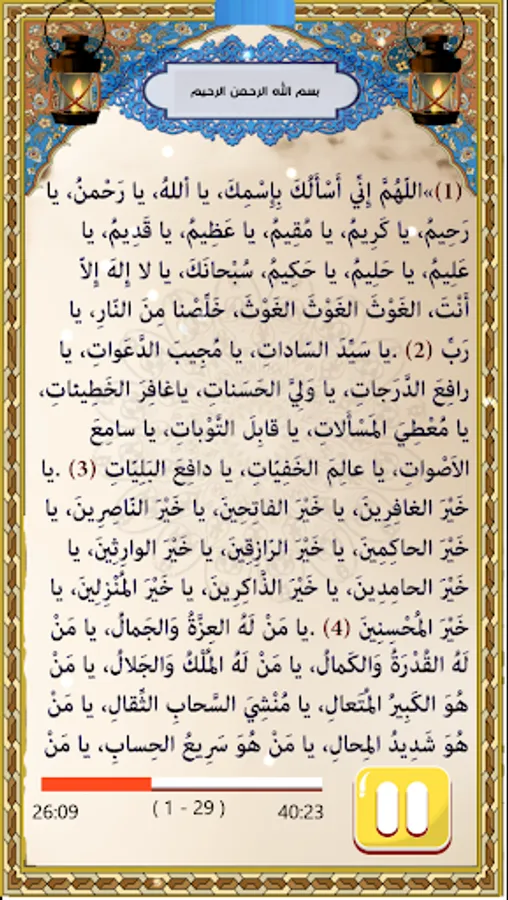 بسم الله الرحمن الرحيم
(1)«اللَّهُمَّ إِنِّي أَسْأَلُكَ بِاِسْمِكَ، يا أللهُ، يا رَحْمنُ، يا
رَحِيمُ، يا كَرِيمُ، يا مُقِيمُ، يا عَظِيمُ، يا قَدِيمُ، يا
عَلِيمُ، يا حَلِيمُ، يا حَكِيمُ، سُبْحانَكَ، يا لا إِلهَ إِلاّ
أَنْتَ، الغَوْثَ الغَوْثَ الغَوْثَ، خَلِّصْنا مِنَ النّارِ، يا
رَبِّ (2) .يا سَيِّدَ السّاداتِ، يا مُجِيبَ الدَّعَواتِ، يا
رافِعَ الدَّرَجاتِ، يا وَلِيَّ الحَسَناتِ، ياغافِرَ الخَطِيئاتِ،
يا مُعْطِيَ المَسْأَلاتِ، يا قابِلَ التَّوْباتِ، يا سامِعَ
الاَصْواتِ، يا عالِمَ الخَفِيّاتِ، يا دافِعَ البَلِيّاتِ (3) .يا
خَيْرَ الغافِرِينَ، يا خَيْرَ الفاتِحِينَ، يا خَيْرَ النّاصِرِينَ، يا
خَيْرَ الحاكِمِينَ، يا خَيْرَ الرّازِقِينَ، يا خَيْرَ الوارِثِينَ، يا
خَيْرَ الحامِدِينَ، يا خَيْرَ الذّاكِرِينَ، يا خَيْرَ المُنْزِلِينَ، يا
خَيْرَ المُحْسِنِينَ (4) .يا مَنْ لَهُ العِزَّةُ وَالجَمالُ، يا مَنْ
لَهُ القُدْرَةُ وَالكَمالُ، يا مَنْ لَهُ المُلْكُ وَالجَلالُ، يا مَنْ
هُوَ الكَبِيرُ المُتَعالِ، يا مُنْشِيَ السَّحابِ الثِّقالِ، يا مَنْ
هُوَ شَدِيدُ المِحالِ، يا مَنْ هُوَ سَرِيعُ الحِسابِ، يا مَنْ
26:09 ( 1 - 29 ) 40:23